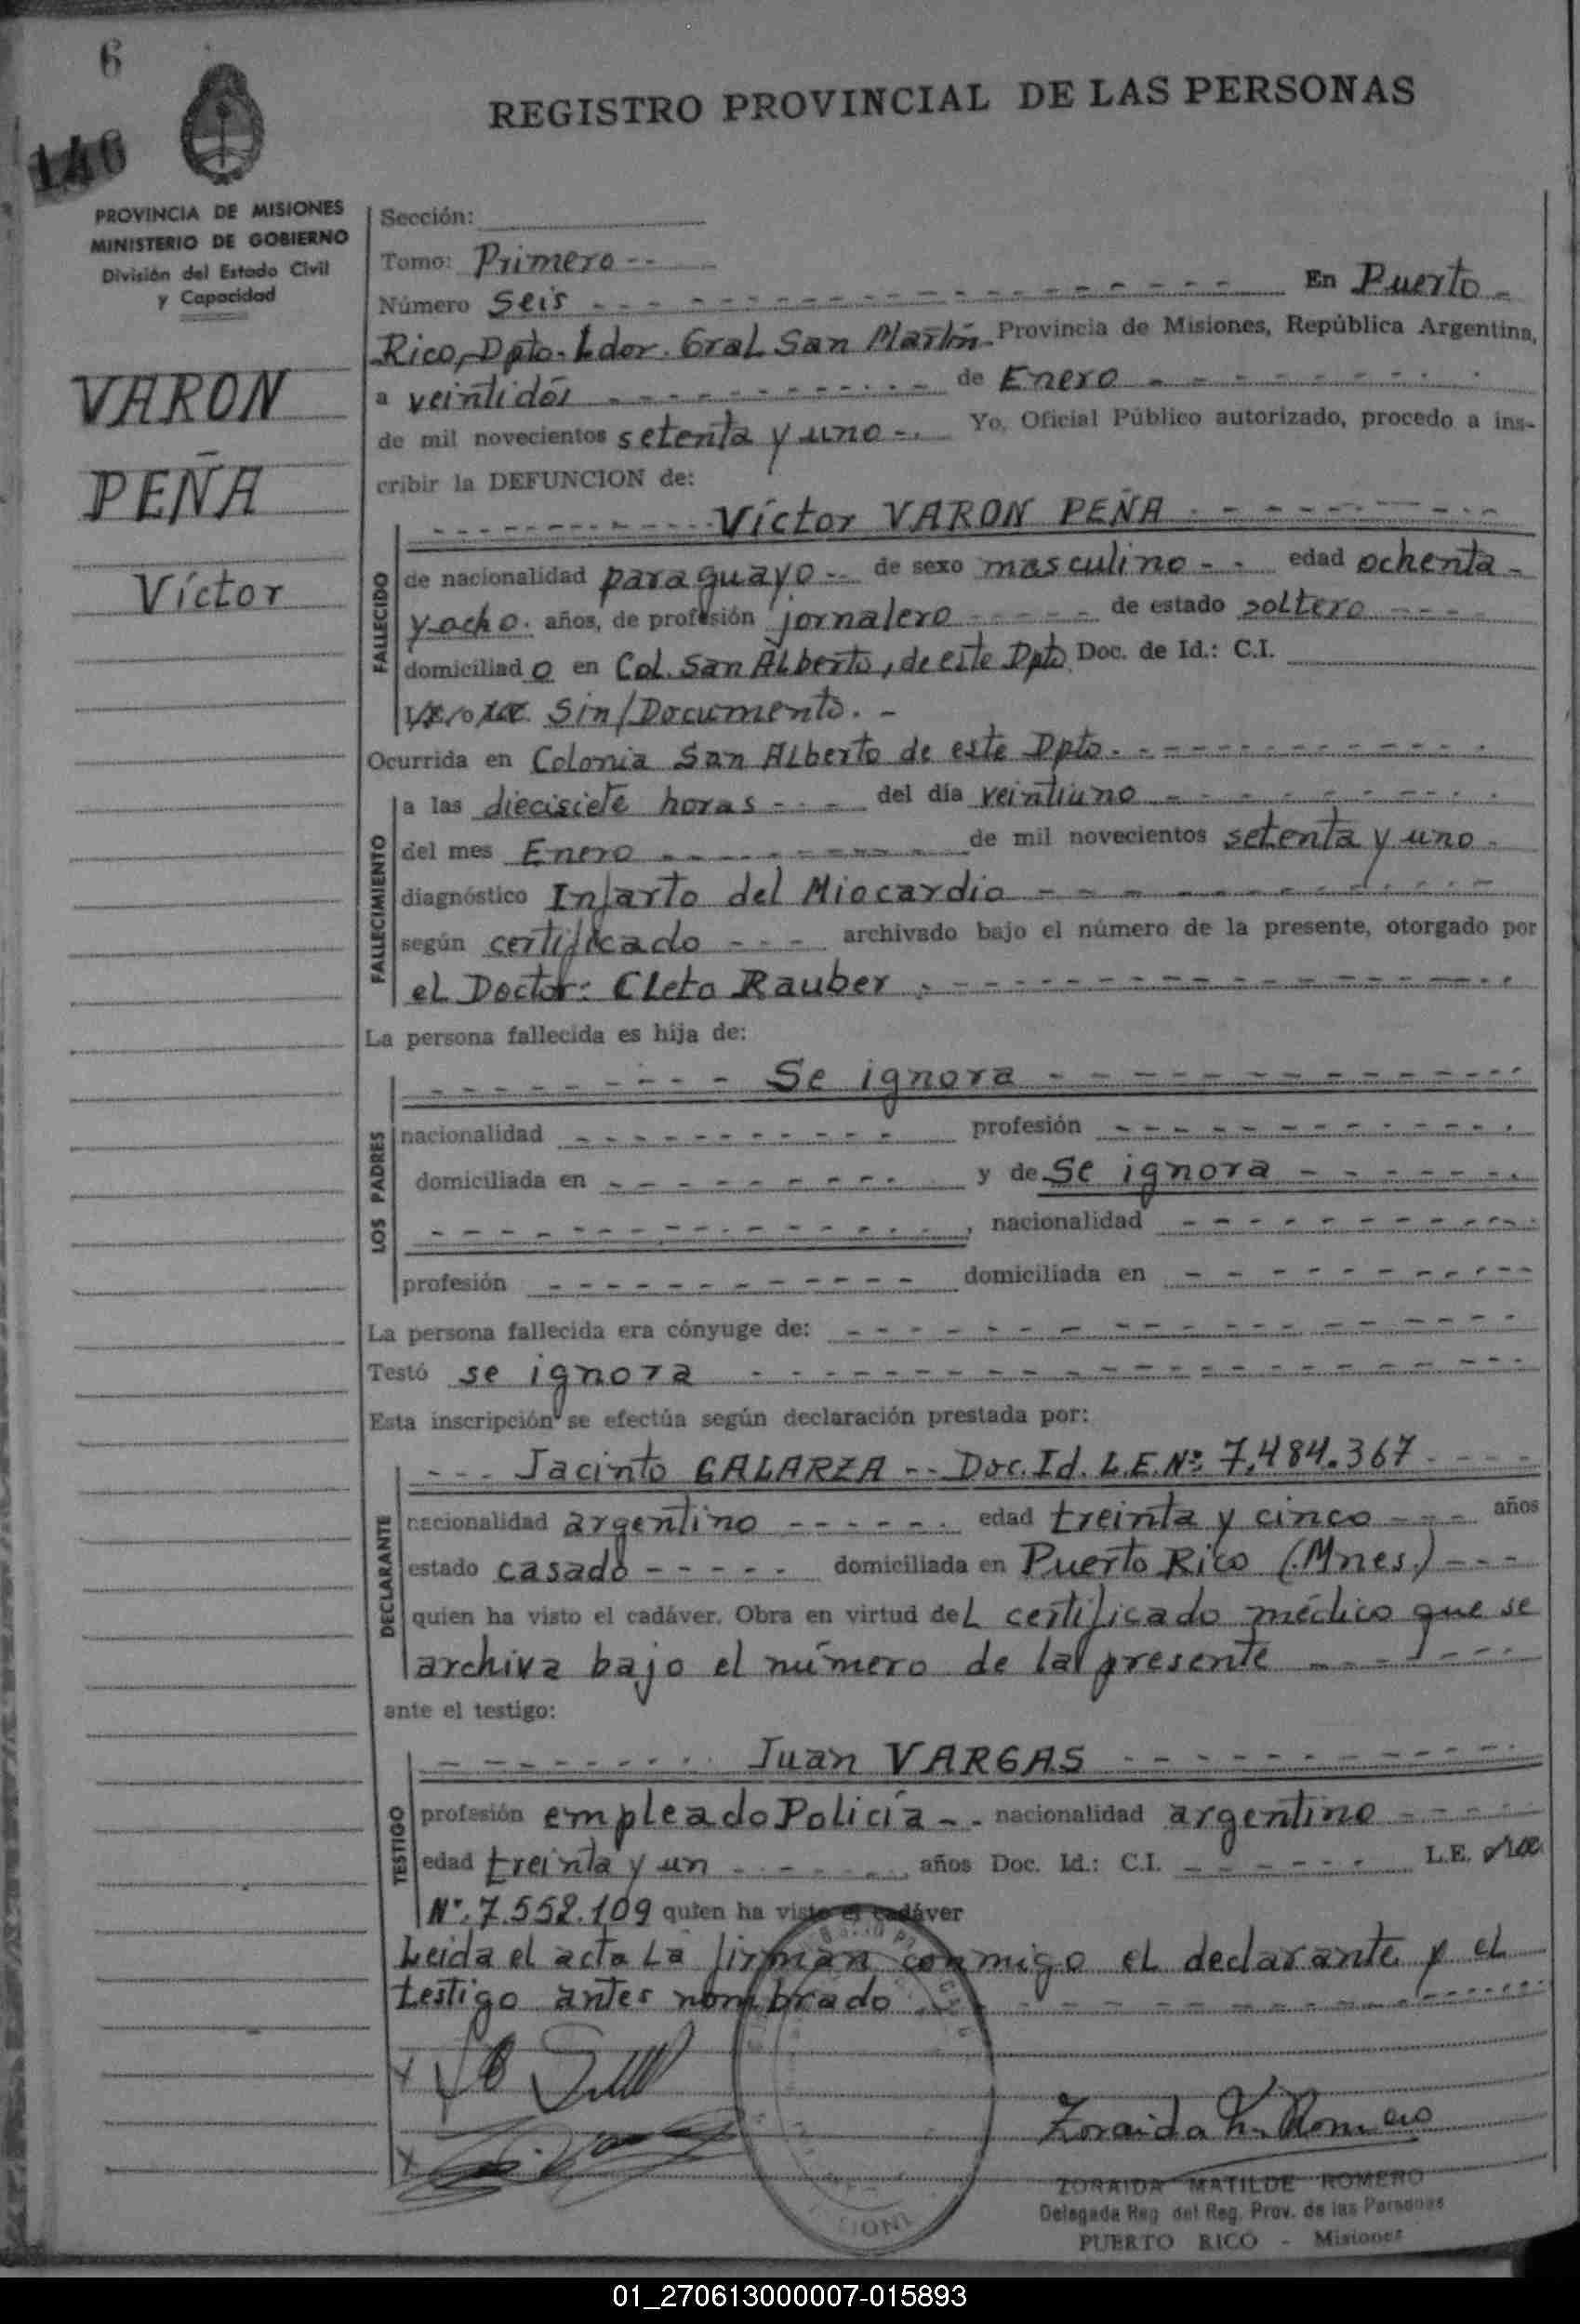 6
REGISTRO PROVINCIAL DE LAS PERSONAS
146
PROVINCIA DE MISIONES
MINISTERIO DE GOBIERNO
División del Estado Civil
y Capacidad
VARON
PEÑA
Víctor
Sección:
Tomo: Primero --
Número Seis - - - En Puerto -
Rico, Dpto. Ldor. Gral San Martín - Provincia de Misiones, República Argentina,
a veintidós - - - de Enero - - -
de mil novecientos setenta y uno -. Yo, Oficial Público autorizado, procedo a ins-
cribir la DEFUNCION de:
- - - Víctor VARON PEÑA - - -
FALLECIDO
de nacionalidad paraguayo -- de sexo masculino - - edad ochenta -
y ocho. años, de profesión jornalero - - - de estado soltero - - -
domiciliado en Col. San Alberto, de este Dpto. Doc. de Id.: C.I.
Sin/Documento. -
Ocurrida en Colonia San Alberto de este Dpto. - - -
FALLECIMIENTO
a las diecisiete horas - - - del día veintiuno - - -
del mes Enero - - - de mil novecientos setenta y uno -
diagnóstico Infarto del Miocardio - - -
según certificado - - - archivado bajo el número de la presente, otorgado por
el Doctor: Cleto Rauber . - - -
La persona fallecida es hija de:
LOS PADRES
- - - Se ignora - - -
nacionalidad - - - profesión - - -
domiciliada en - - - y de Se ignora - - -
- - - , nacionalidad - - -
profesión - - - domiciliada en - - -
La persona fallecida era cónyuge de: - - -
Testó se ignora - - -
Esta inscripción se efectúa según declaración prestada por:
DECLARANTE
- - - Jacinto GALARZA -- Doc. Id. L.E. Nº: 7,484.367 - - -
nacionalidad argentino - - - edad treinta y cinco - - - años
estado casado - - - domiciliada en Puerto Rico (Mnes.) - - -
quien ha visto el cadáver. Obra en virtud del certificado médico que se
archiva bajo el número de la presente - - -
ante el testigo:
TESTIGO
- - - Juan VARGAS - - -
profesión empleado Policía - - nacionalidad argentino - - -
edad treinta y un - - - años Doc. Id.: C.I. - - - L.E.
Nº. 7.552.109 quien ha visto el cadáver
Leida el acta la firman conmigo el declarante y el
testigo antes nombrado - - -
Zoraida M. Romero
ZORAIDA MATILDE ROMERO
Delegada Reg del Reg. Prov. de las Personas
PUERTO RICO - Misiones
01_270613000007-015893